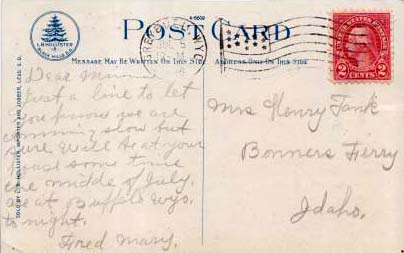 A-6609
POST CARD
MESSAGE MAY BE WRITTEN ON THIS SIDE
ADDRESS ONLY ON THIS SIDE
L.B. HOLLISTER
BLACK HILLS, S.D.
UNITED STATES POSTAGE
2 CENTS 2
Dear
Just a line to let
you know we are
comming slow but
sure will be at your
place some time
the middle of July.
are at Buffalo Wyo.
to night.
Fred Mary.
Mrs Henry Tank
Bonners Ferry
Idaho.
SOLD BY L. B. HOLLISTER, IMPORTER AND JOBBER, LEAD, S. D.